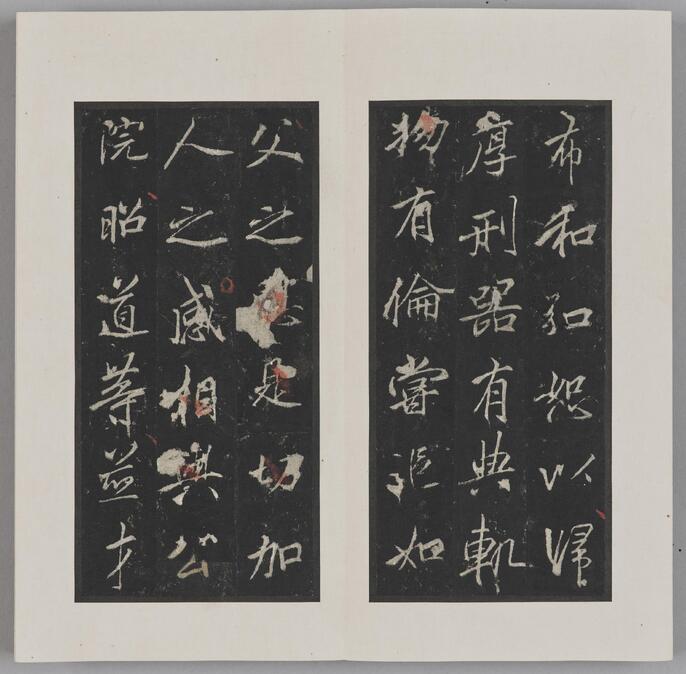 布和弘恕以歸
厚刑器有典軌
物有倫嘗如
父之是切加
人之感相與公
院昭道等並才